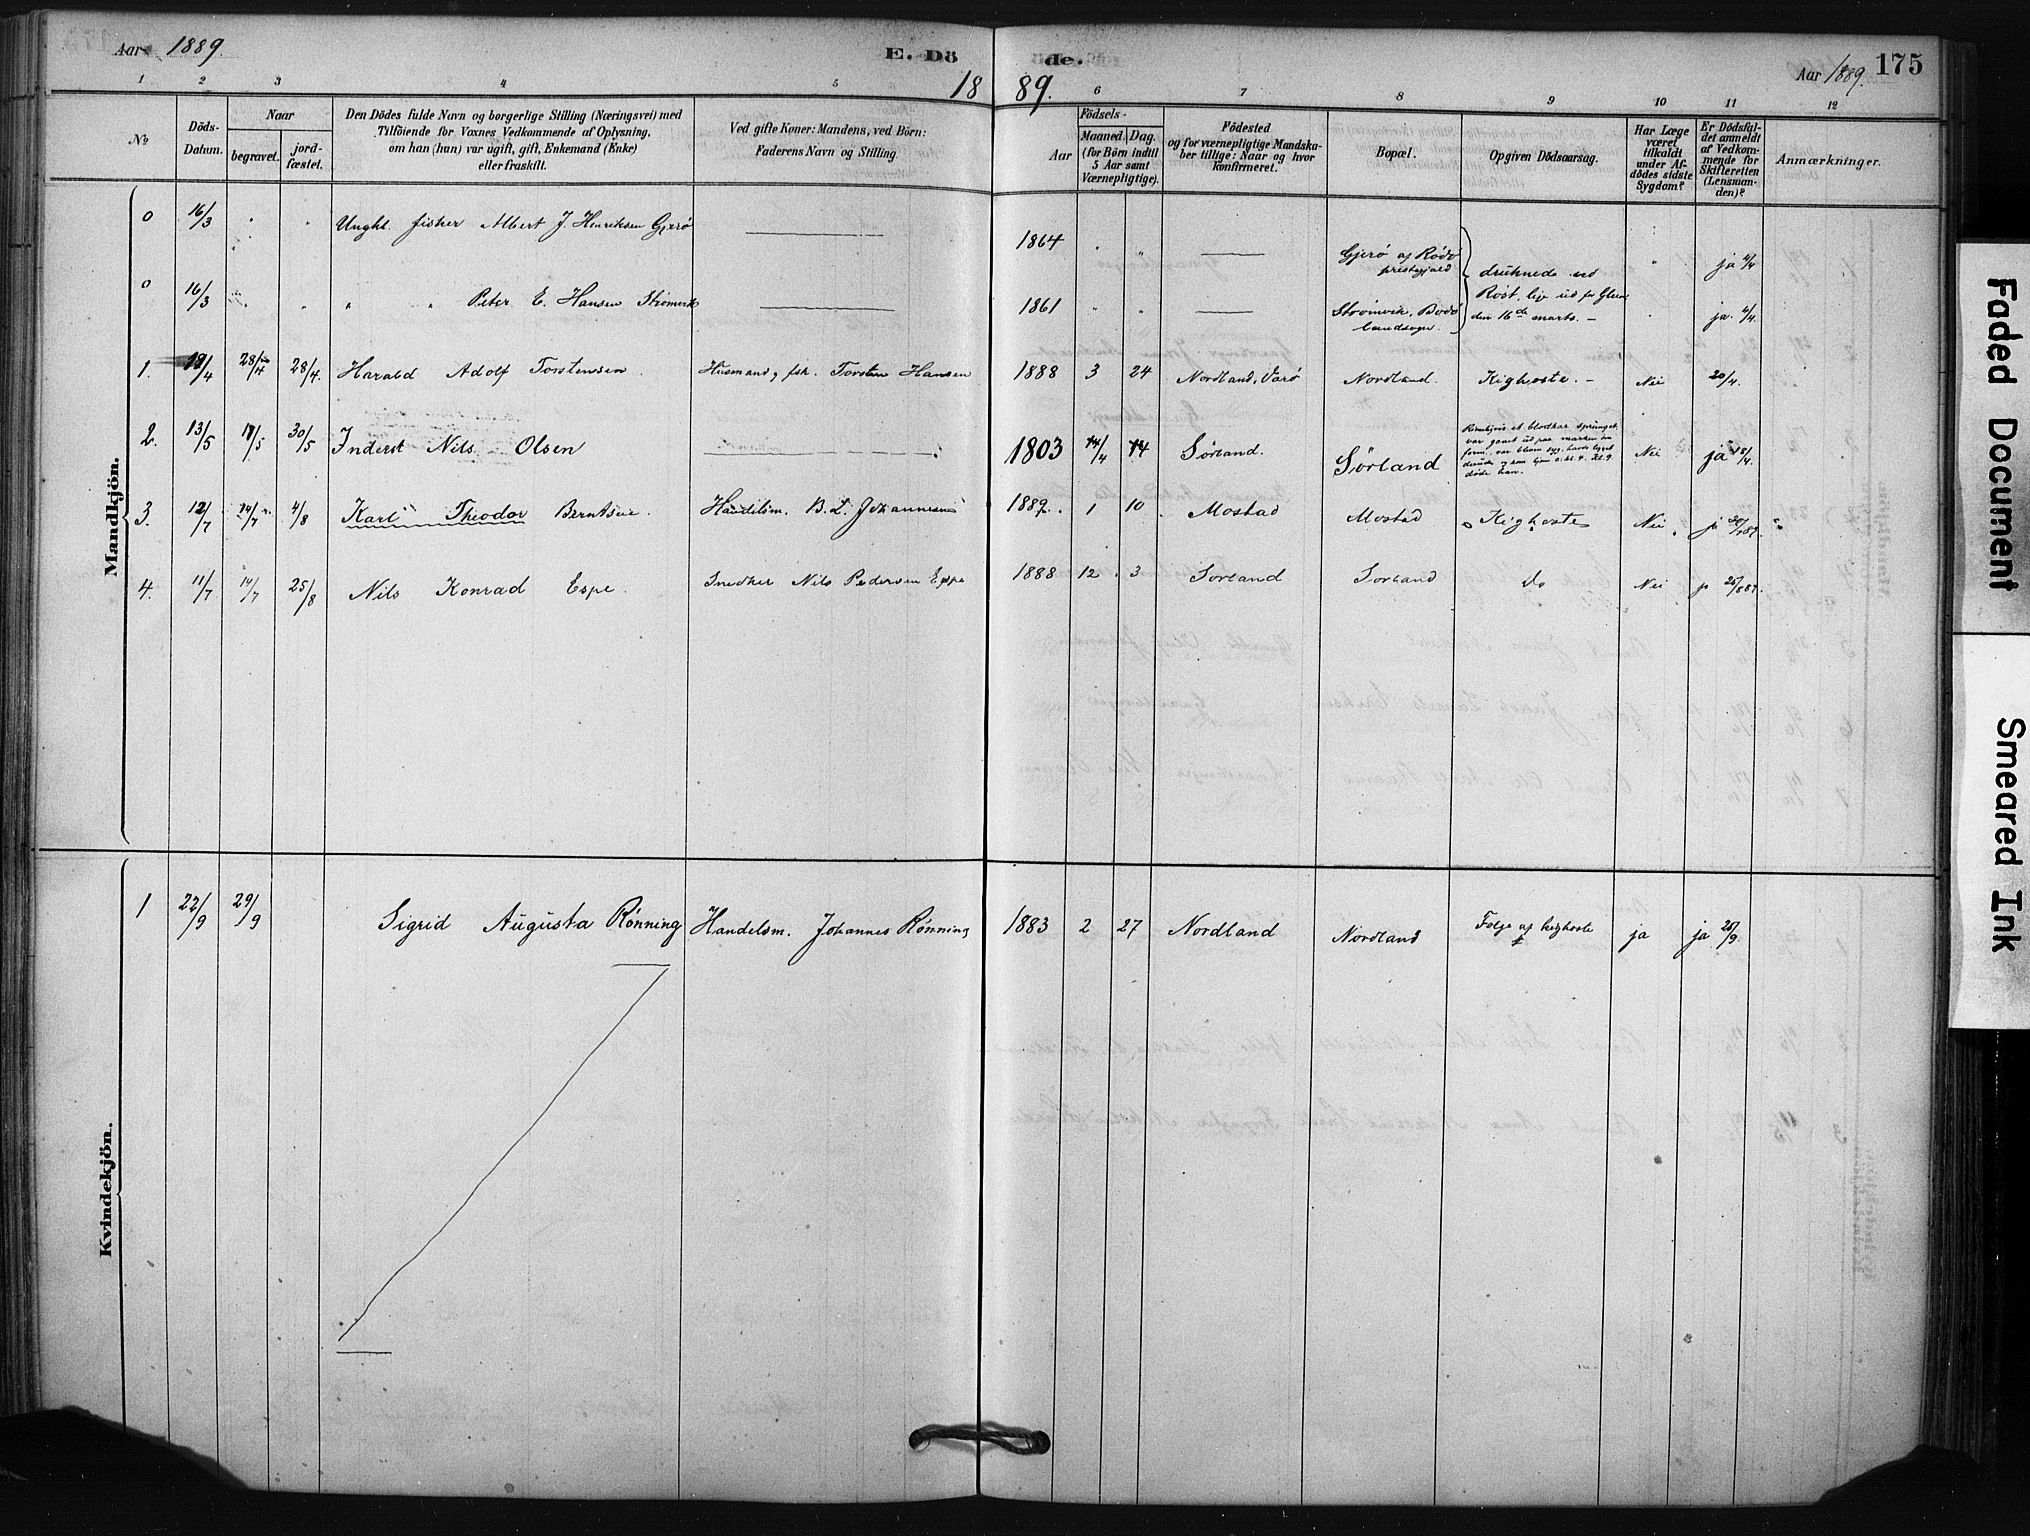 Aar 1889. E. Dö de. Aar 1889. 175
18 89.
1 2 3 4 5 6 7 8 9 10 11 12
No
Döds-
Datum.
Naar
begravet.
jord-
fæstet.
Den Dödes fulde Navn og borgerlige Stilling (Næringsvei) med
Tilföiende for Voxnes Vedkommende af Oplysning,
om han (hun) var ugift, gift, Enkemand (Enke)
eller fraskilt.
Ved gifte Koner: Mandens, ved Börn:
Faderens Navn og Stilling.
Födsels-
Aar
Maaned.
Dag.
(for Börn indtil
5 Aar samt
Værnepligtige).
Födested
og for værnepligtige Mandska-
ber tillige: Naar og hvor
Konfirmeret.
Bopæl.
Opgiven Dödsaarsag.
Har Læge
været
tilkaldt
under Af-
dödes sidste
Sygdom?
Er Dödsfal-
det anmeldt
af Vedkom-
mende for
Skifteretten
(Lensman-
den)?
Anmærkninger.
Mandkjön.
0 16/3 " " Ungkl. fisker Albert J. Henriksen Gjerø 1864 " " Gjerø af Rødø
prestegjeld druknede ved " ja 4/4
0 16/3 " " " " Peter E. Hansen Strømvik 1861 " " Strømvik, Bodø
landsogn. Røst, lige ud for Glea
den 16de marts. - " ja. 4/4.
1. 18/4 28/4 28/4. Harald Adolf Torstensen. Husmand, fisk. Torsten Hansen 1888 3 24 Nordland, Værø Nordland. Kighoste. - Nei 20/4.
2. 13/5 17/5 30/5 Inderst Nils Olsen 1803 14/4 14 Sørland. Sørland Nei ja 15/4.
3. 12/7 14/7 4/8 Karl Theodor Berntsen. Handelsm. B. L. Johannesen 1889. 1 10 Mostad Mostad Kighoste Nei ja
4. 11/7 14/7 25/8 Nils Konrad Espe. Snedker Nils Pedersen Espe 1888 12 3 Sørland Sørland Do Nei ja 25/8 89.
Kvindekjön.
1 22/9 29/9 Sigrid Augusta Rønning Handelsm. Johannes Rønning 1883 2 27 Nordland Nordland Følge af kighoste ja ja 25/9.
Faded Document
Smeared Ink